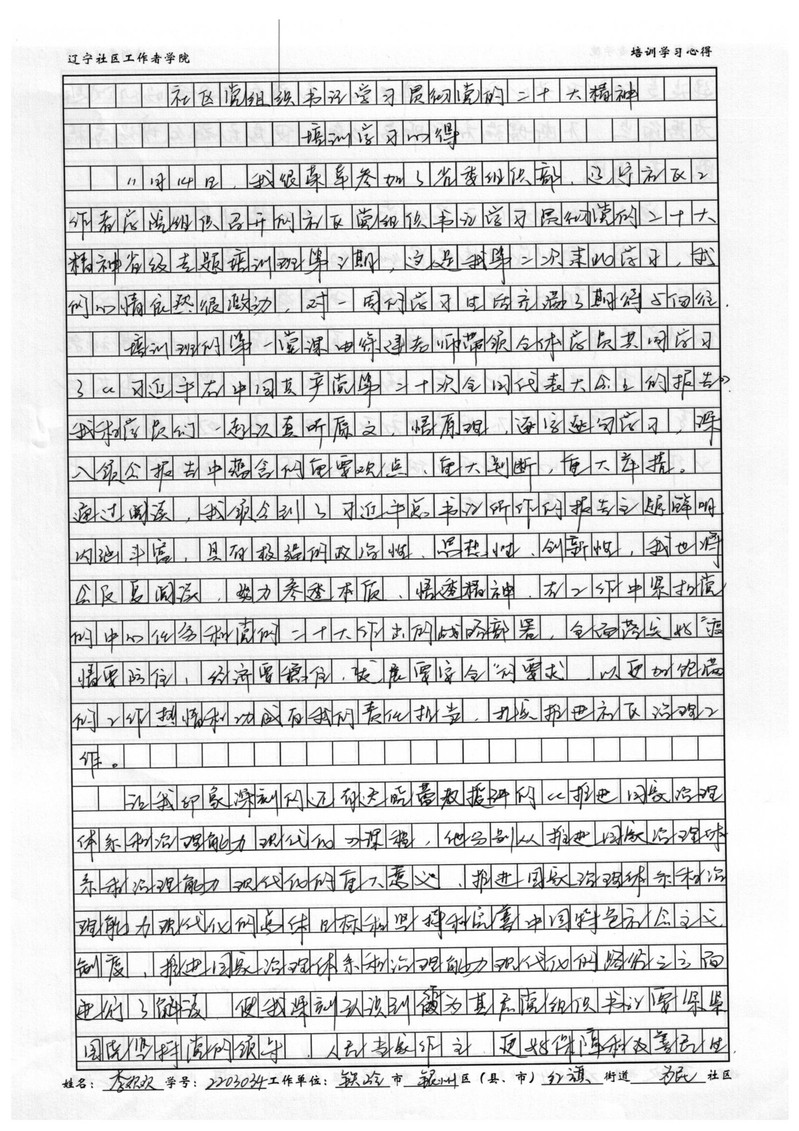 辽宁社区工作者学院 培训学习心得
社区党组织书记学习贯彻党的二十大精神
培训学习心得
11月14日,我很荣幸参加了省委组织部、辽宁社区工
作者学院组织召开的社区党组织书记学习贯彻党的二十大
精神省级专题培训班第2期,这是我第二次来此学习,我
的心情依然很激动,对一周的学习生活充满了期待与向往.
培训班的第一堂课由佟建老师带领全体学员共同学习
了《习近平在中国共产党第二十次全国代表大会上的报告》
我和学员们一起认真听原文、悟原理,逐字逐句学习,深
入领会报告中蕴含的重要观点、重大判断,重大举措。
通过阅读,我领会到了习近平总书记所作的报告主题鲜明
内涵丰富,具有极强的政治性、思想性、创新性,我也将
会反复阅读,努力参透本质、悟透精神,在工作中紧扣党
的中心任务和党的二十大作出的战略部署,全面落实好“疫
情要防住,经济要稳住,发展要安全”的要求,以更加饱满
的工作热情和功成有我的责任担当,扎实推进社区治理工
作。
让我印象深刻的还有 教授讲的《推进国家治理
体系和治理能力现代化》课程,他分别从推进国家治理体
系和治理能力现代化的重大意义、推进国家治理体系和治
理能力现代化的总体目标和坚持和完善中国特色社会主义
制度、推进国家治理体系和治理能力现代化的 三方面
进行了解读,使我深刻认识到 为基层党组织书记要紧紧
围绕坚持党的领导、人民当家作主,更好保障和改善民生
姓名: 李 学号:2203034 工作单位:铁岭市 银州区(县、市)红旗 街道 为民 社区